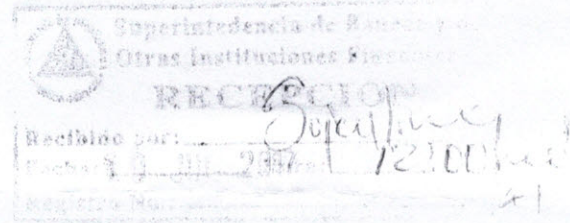 Superintedencia de Bancos y de
Otras Instituciones Financier
RECEPCION
Recibido por:
Fecha: JUL 2007 12:00 md
Registro No.: